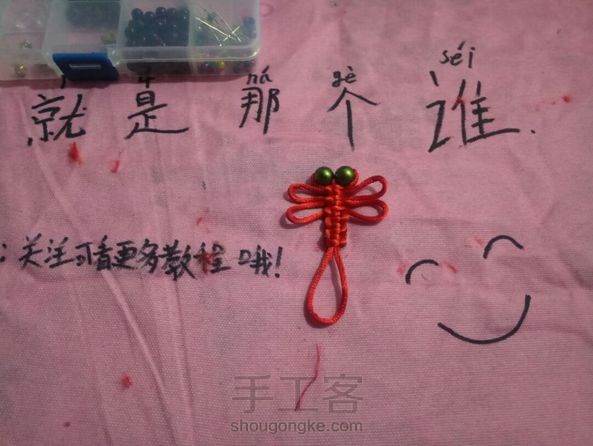 nà gè séi
就是那个谁.
:关注可看更多教程哦!
手工客
shougongke.com